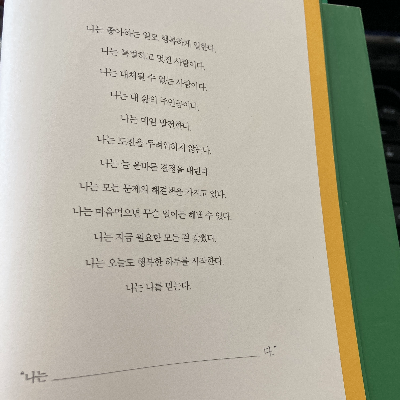 나는 좋아하는 일로 행복하게 일한다.
나는 특별하고 멋진 사람이다.
나는 대체될 수 없는 사람이다.
나는 내 삶의 주인공이다.
나는 매일 발전한다.
나는 도전을 두려워하지 않는다.
나는 늘 올바른 결정을 내린다.
나는 모든 문제의 해결책을 가지고 있다.
나는 마음먹으면 무슨 일이든 해낼 수 있다.
나는 지금 필요한 모든 걸 갖췄다.
나는 오늘도 행복한 하루를 시작한다.
나는 나를 믿는다.
"나는 ______________ 다."